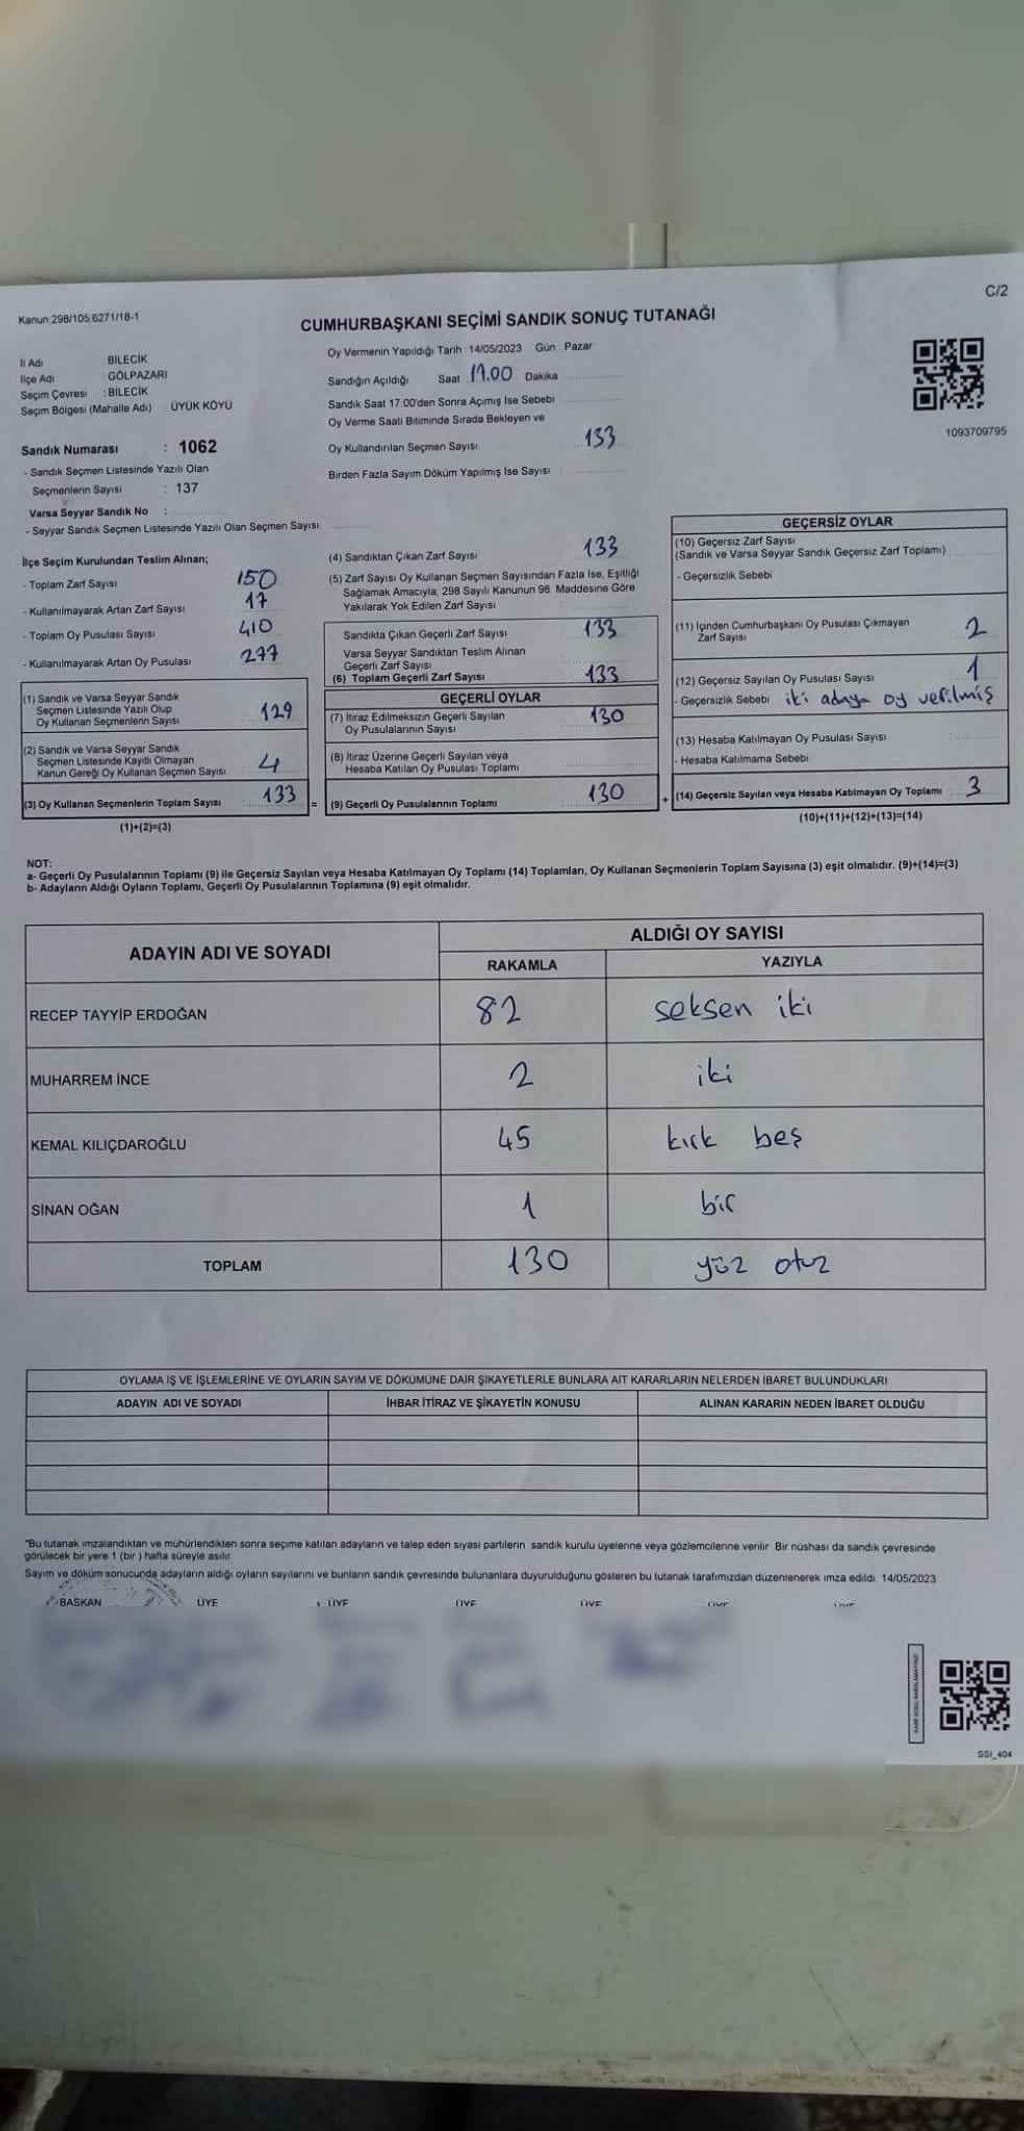 C/2
Kanun:298/105,6271/18-1
CUMHURBAŞKANI SEÇİMİ SANDIK SONUÇ TUTANAĞI
İl Adı BİLECİK
İlçe Adı GÖLPAZARI
Seçim Çevresi : BİLECİK
Seçim Bölgesi (Mahalle Adı) ÜYÜK KÖYÜ
Oy Vermenin Yapıldığı Tarih : 14/05/2023 Gün : Pazar
Sandığın Açıldığı Saat 17.00 Dakika
Sandık Saat 17:00'den Sonra Açımış İse Sebebi
Oy Verme Saati Bitiminde Sırada Bekleyen ve
Oy Kullandırılan Seçmen Sayısı 133
Birden Fazla Sayım Döküm Yapılmış İse Sayısı
1093709795
Sandık Numarası : 1062
- Sandık Seçmen Listesinde Yazılı Olan
Seçmenlerin Sayısı : 137
Varsa Seyyar Sandık No :
- Seyyar Sandık Seçmen Listesinde Yazılı Olan Seçmen Sayısı
İlçe Seçim Kurulundan Teslim Alınan;
- Toplam Zarf Sayısı 150
- Kullanılmayarak Artan Zarf Sayısı 17
- Toplam Oy Pusulası Sayısı 410
- Kullanılmayarak Artan Oy Pusulası 277
(1) Sandık ve Varsa Seyyar Sandık
Seçmen Listesinde Yazılı Olup
Oy Kullanan Seçmenlerin Sayısı 129
(2) Sandık ve Varsa Seyyar Sandık
Seçmen Listesinde Kayıtlı Olmayan
Kanun Gereği Oy Kullanan Seçmen Sayısı 4
(3) Oy Kullanan Seçmenlerin Toplam Sayısı 133 =
(1)+(2)=(3)
(4) Sandıktan Çıkan Zarf Sayısı 133
(5) Zarf Sayısı Oy Kullanan Seçmen Sayısından Fazla İse, Eşitliği
Sağlamak Amacıyla, 298 Sayılı Kanunun 98. Maddesine Göre
Yakılarak Yok Edilen Zarf Sayısı
Sandıkta Çıkan Geçerli Zarf Sayısı 133
Varsa Seyyar Sandıktan Teslim Alınan
Geçerli Zarf Sayısı
(6) Toplam Geçerli Zarf Sayısı 133
GEÇERLİ OYLAR
(7) İtiraz Edilmeksizin Geçerli Sayılan
Oy Pusulalarının Sayısı 130
(8) İtiraz Üzerine Geçerli Sayılan veya
Hesaba Katılan Oy Pusulası Toplamı
(9) Geçerli Oy Pusulalarının Toplamı 130 +
GEÇERSİZ OYLAR
(10) Geçersiz Zarf Sayısı
(Sandık ve Varsa Seyyar Sandık Geçersiz Zarf Toplamı)
- Geçersizlik Sebebi
(11) İçinden Cumhurbaşkanı Oy Pusulası Çıkmayan
Zarf Sayısı 2
(12) Geçersiz Sayılan Oy Pusulası Sayısı 1
- Geçersizlik Sebebi iki adaya oy verilmiş
(13) Hesaba Katılmayan Oy Pusulası Sayısı
- Hesaba Katılmama Sebebi
(14) Geçersiz Sayılan veya Hesaba Katılmayan Oy Toplamı 3
(10)+(11)+(12)+(13)=(14)
NOT:
a- Geçerli Oy Pusulalarının Toplamı (9) ile Geçersiz Sayılan veya Hesaba Katılmayan Oy Toplamı (14) Toplamları, Oy Kullanan Seçmenlerin Toplam Sayısına (3) eşit olmalıdır. (9)+(14)=(3)
b- Adayların Aldığı Oyların Toplamı, Geçerli Oy Pusulalarının Toplamına (9) eşit olmalıdır.
ADAYIN ADI VE SOYADI ALDIĞI OY SAYISI
RAKAMLA YAZIYLA
RECEP TAYYİP ERDOĞAN 82 seksen iki
MUHARREM İNCE 2 iki
KEMAL KILIÇDAROĞLU 45 kırk beş
SİNAN OĞAN 1 bir
TOPLAM 130 yüz otuz
OYLAMA İŞ VE İŞLEMLERİNE VE OYLARIN SAYIM VE DÖKÜMÜNE DAİR ŞİKAYETLERLE BUNLARA AİT KARARLARIN NELERDEN İBARET BULUNDUKLARI
ADAYIN ADI VE SOYADI İHBAR İTİRAZ VE ŞİKAYETİN KONUSU ALINAN KARARIN NEDEN İBARET OLDUĞU
"Bu tutanak imzalandıktan ve mühürlendikten sonra seçime katılan adayların ve talep eden siyasi partilerin sandık kurulu üyelerine veya gözlemcilerine verilir. Bir nüshası da sandık çevresinde
görülecek bir yere 1 (bir ) hafta süreyle asılır.
Sayım ve döküm sonucunda adayların aldığı oyların sayılarını ve bunların sandık çevresinde bulunanlara duyurulduğunu gösteren bu tutanak tarafımızdan düzenlenerek imza edildi. 14/05/2023
BAŞKAN ÜYE ÜYE ÜYE ÜYE
SSI_404